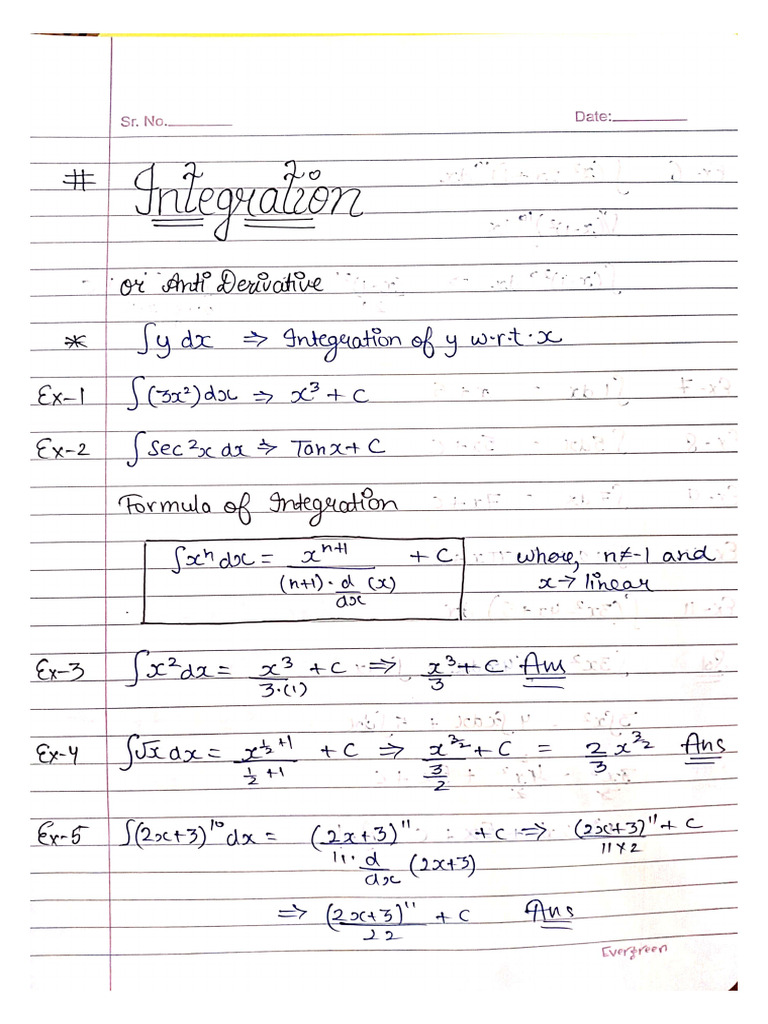 Sr. No.
Date:
# Integration
or Anti Derivative
* ∫y dx ⇒ Integration of y w.r.t. x
Ex-1 ∫(3x²)dx ⇒ x³ + C
Ex-2 ∫Sec²x dx ⇒ Tanx + C
Formula of Integration
∫xⁿ dx = xⁿ⁺¹ / (n+1)· d/dx (x) + C where, n≠-1 and
x → linear
Ex-3 ∫x²dx = x³/3·(1) + C ⇒ x³/3 + C Ans
Ex-4 ∫√x dx = x^(1/2 +1) / (1/2 +1) + C ⇒ x^(3/2) / (3/2) + C = 2/3 x^(3/2) Ans
Ex-5 ∫(2x+3)¹⁰ dx = (2x+3)¹¹ / 11· d/dx (2x+3) + C ⇒ (2x+3)¹¹ / 11×2 + C
⇒ (2x+3)¹¹ / 22 + C Ans
Evergreen